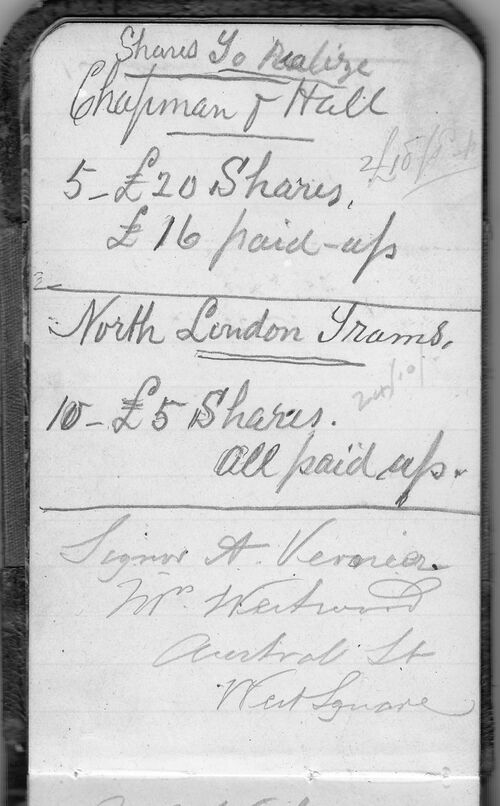 Shares To Realize
Chapman & Hall
5 - £20 Shares,
£16 paid-up
North London Trams.
10 - £5 Shares.
All paid up.
Signor A.
Westwood
Austral St
West Square